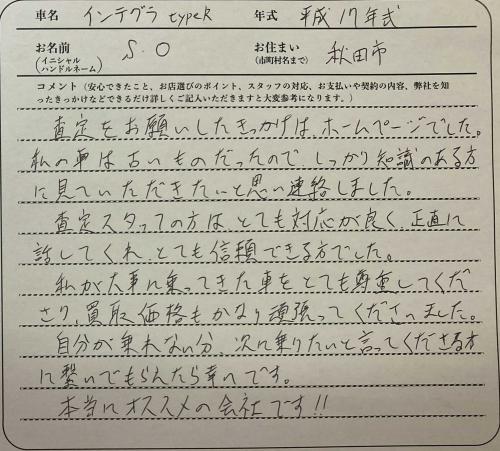 車名 インテグラ typeR 年式 平成17年式
お名前 S.O お住まい 秋田市
(イニシャル ハンドルネーム) (市町村名まで)
コメント(安心できたこと、お店選びのポイント、スタッフの対応、お支払いや契約の内容、弊社を知
ったきっかけなどできるだけ詳しくご記入いただきますと大変参考になります。)
査定をお願いしたきっかけは、ホームページでした。
私の車は古いものだったので、しっかり知識のある方
に見ていただきたいと思い連絡しました。
査定スタッフの方は、とても対応が良く、正直に
話してくれ、とても信頼できる方でした。
私が大事に乗ってきた車をとても尊重してくだ
さり、買取価格もかなり頑張ってくださいました。
自分が乗れない分、次に乗りたいと言ってくださる方
に繋いでもらえたら幸いです。
本当にオススメの会社です!!